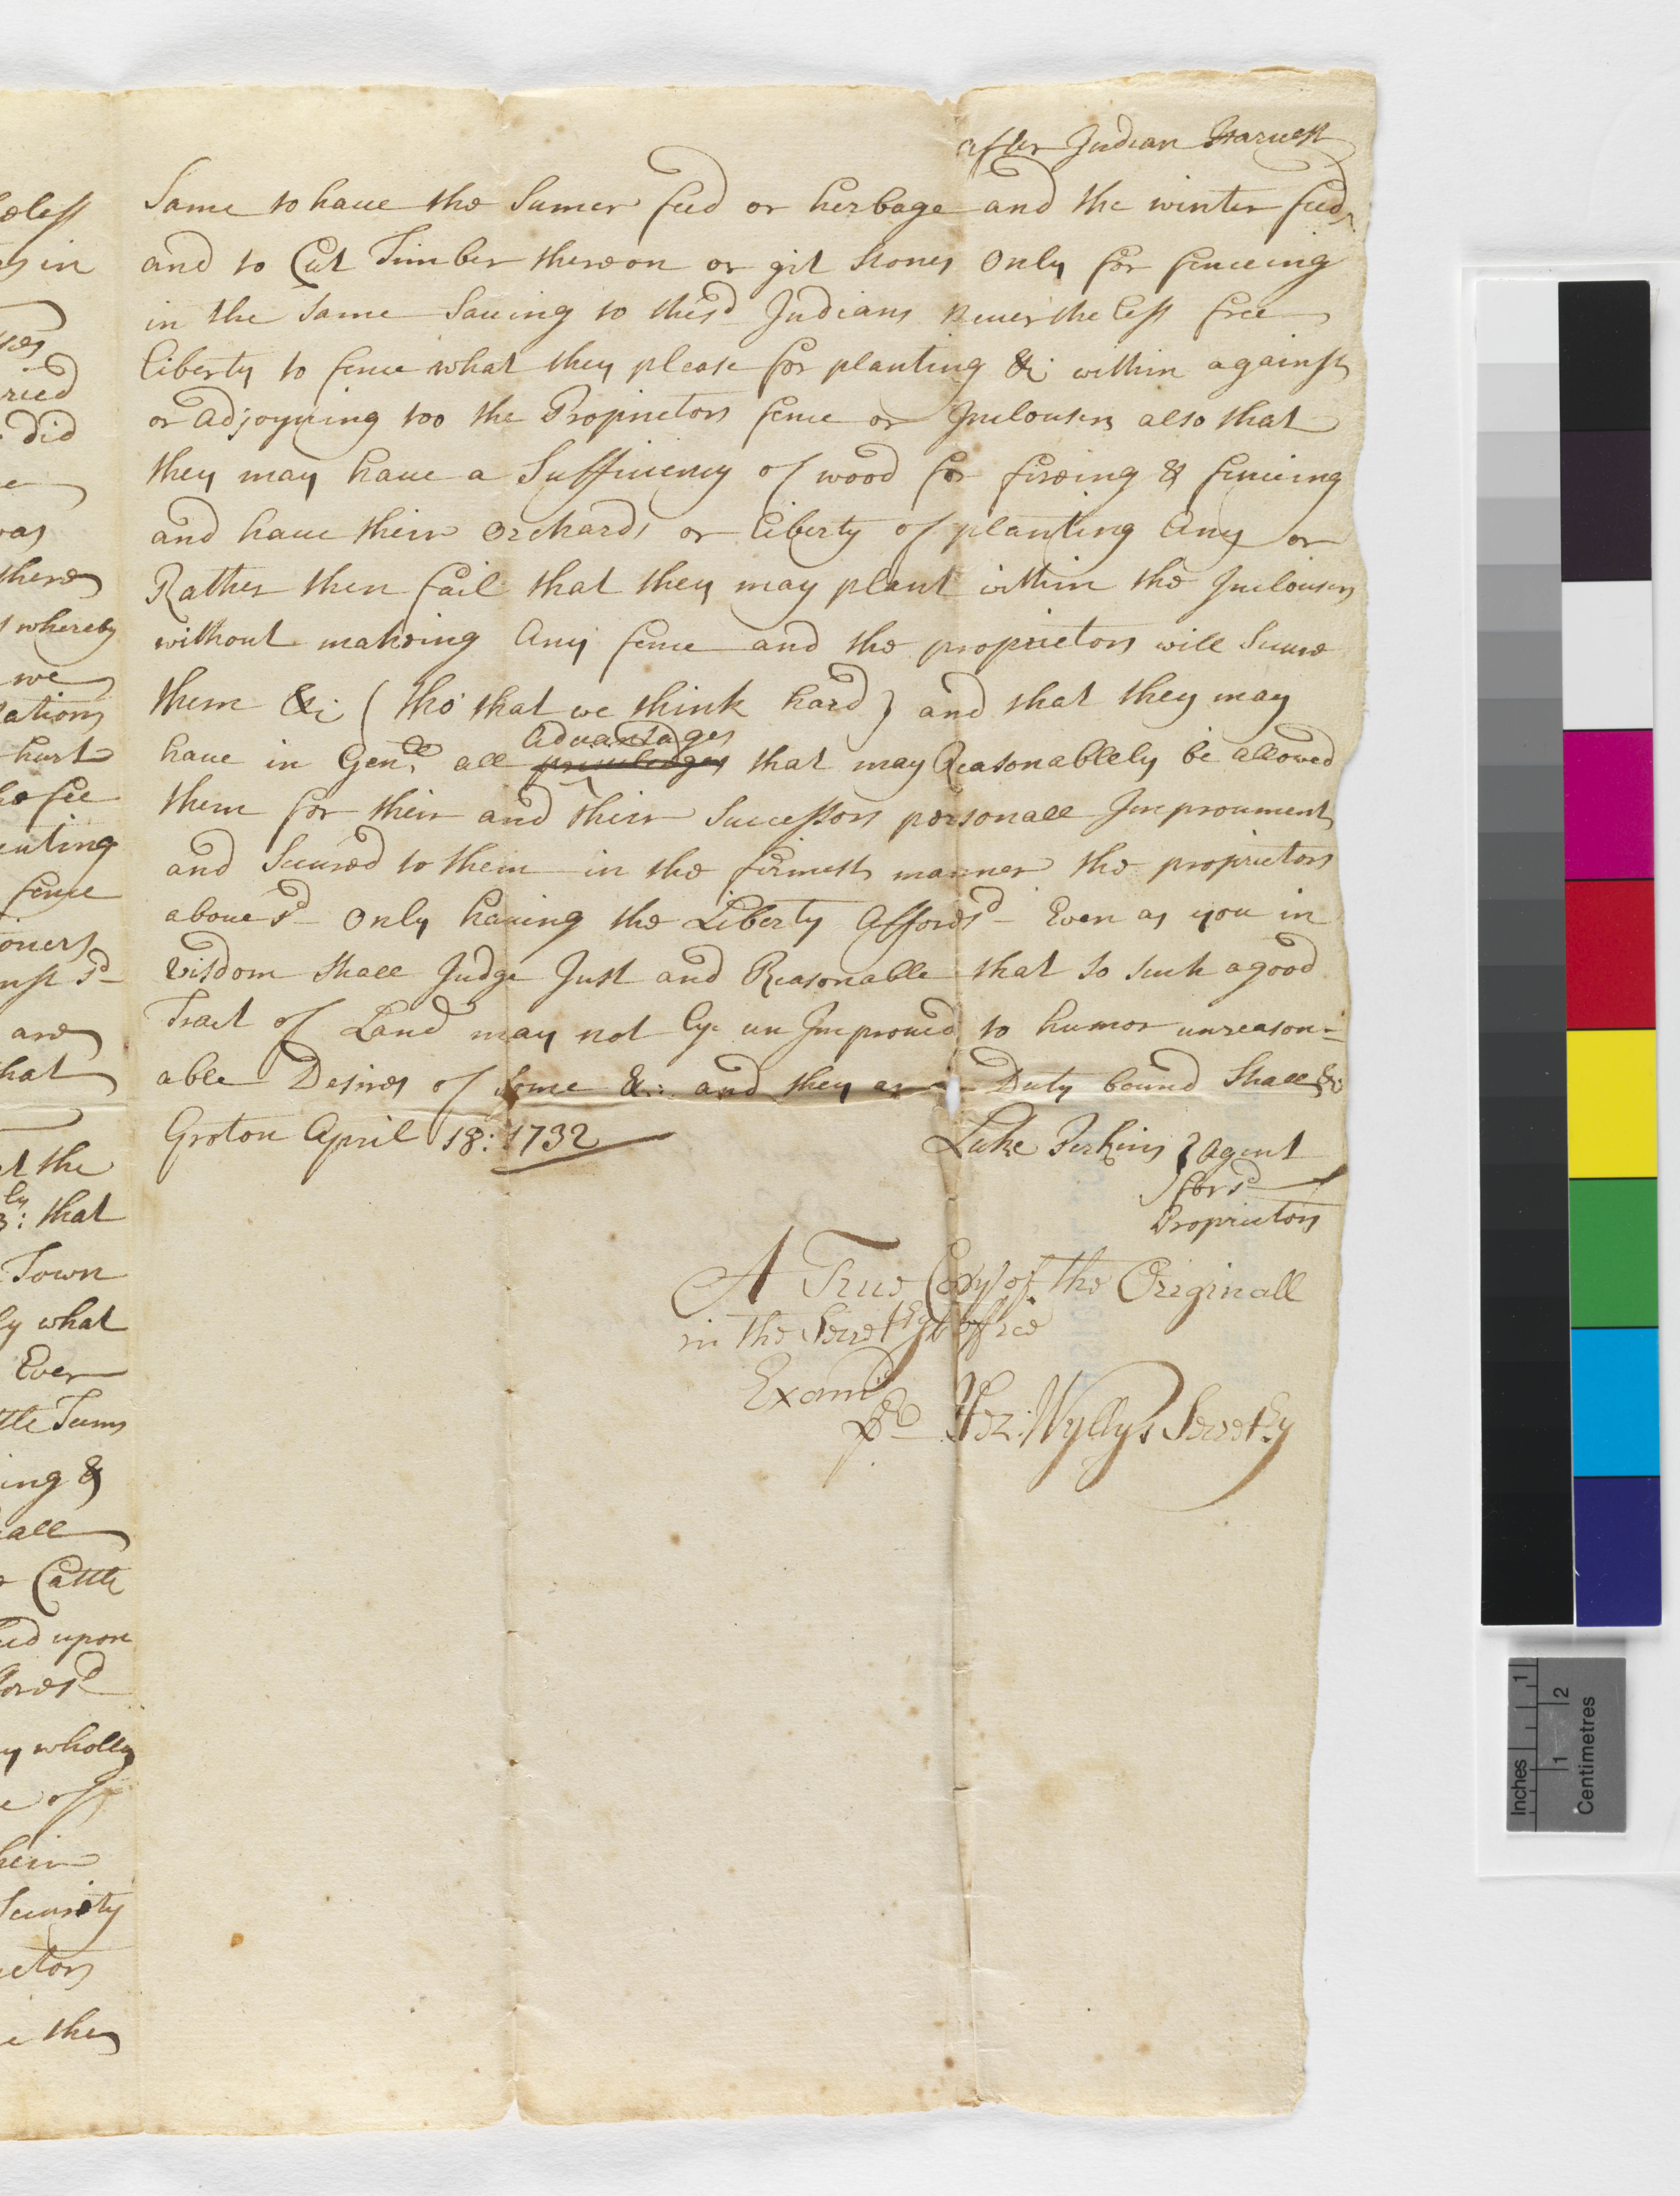 after Indian Harvest
Same to haue the Sumer feed or herbage and the winter feed
and to Cut Timber thereon or git stones Only for fenceing
in the Same Saueing to thes.d Indians neuerthe less free
liberty to fence what they please for planting &c within against
or adjoyning too the Proprietors fence or Inclousers also that
they may haue a Sufficiency of wood for fireing & fenceing
and haue their Orchards or liberty of planting Any or
Rather then fail that they may plant within the Inclousers
without makeing Any fence and the proprietors will Secure
them &c (tho' that we think hard) and that they may
Advantages
haue in Gen.ll all priviledges that may Reasonablely be allowed
them for their and their Successors personall Improument
and Secured to them in the firmest manner the proprietors
aboue s.d Only haueing the Liberty afores.d Even as you in
Wisdom shall Judge Just and Reasonable that so such a good
Tract of Land may not ly un Improued to humor unreason=
able Desires of Some &c: and they as in Duty bound Shall &c
Groton April 18: 1732
Luke Perkins } Agent
for s.d
Proprietors
A True Copy of the Originall
in the Secret.rys office
Exam.d
p.r Hez: Wyllys Secret.ry
whereby
we
hurt
fence
are
hat
the
that
Town
what
Ever
ing &
all
Cattle
upon
wholly
Security
Inches
1
1
2
Centimetres